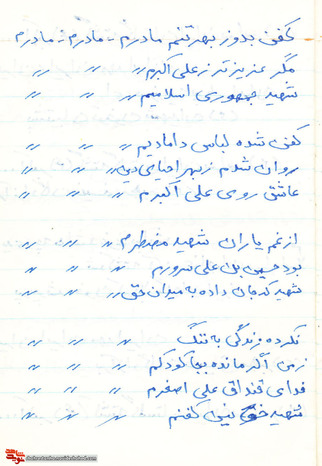 کفنی بدوز بهر تنم مادرم - مادرم - مادرم
مگر عزیزتر ز علی اکبرم " " "
شهید جمهوری اسلامیم " " "
کفن شده لباس دامادیم " " "
روان شدم ز بهر احیای دین " " "
عاشق روی علی اکبرم " " "
از غم یاران شهید مضطرم " " "
بود حسین بن علی سرورم " " "
شهید که جان داده به میدان حق " " "
نکرده زندگی به ننگ " " "
ز من اگر مانده بجا کودکم " " "
فدای قنداق علی اصغرم " " "
شهید خونین کفنم " " "